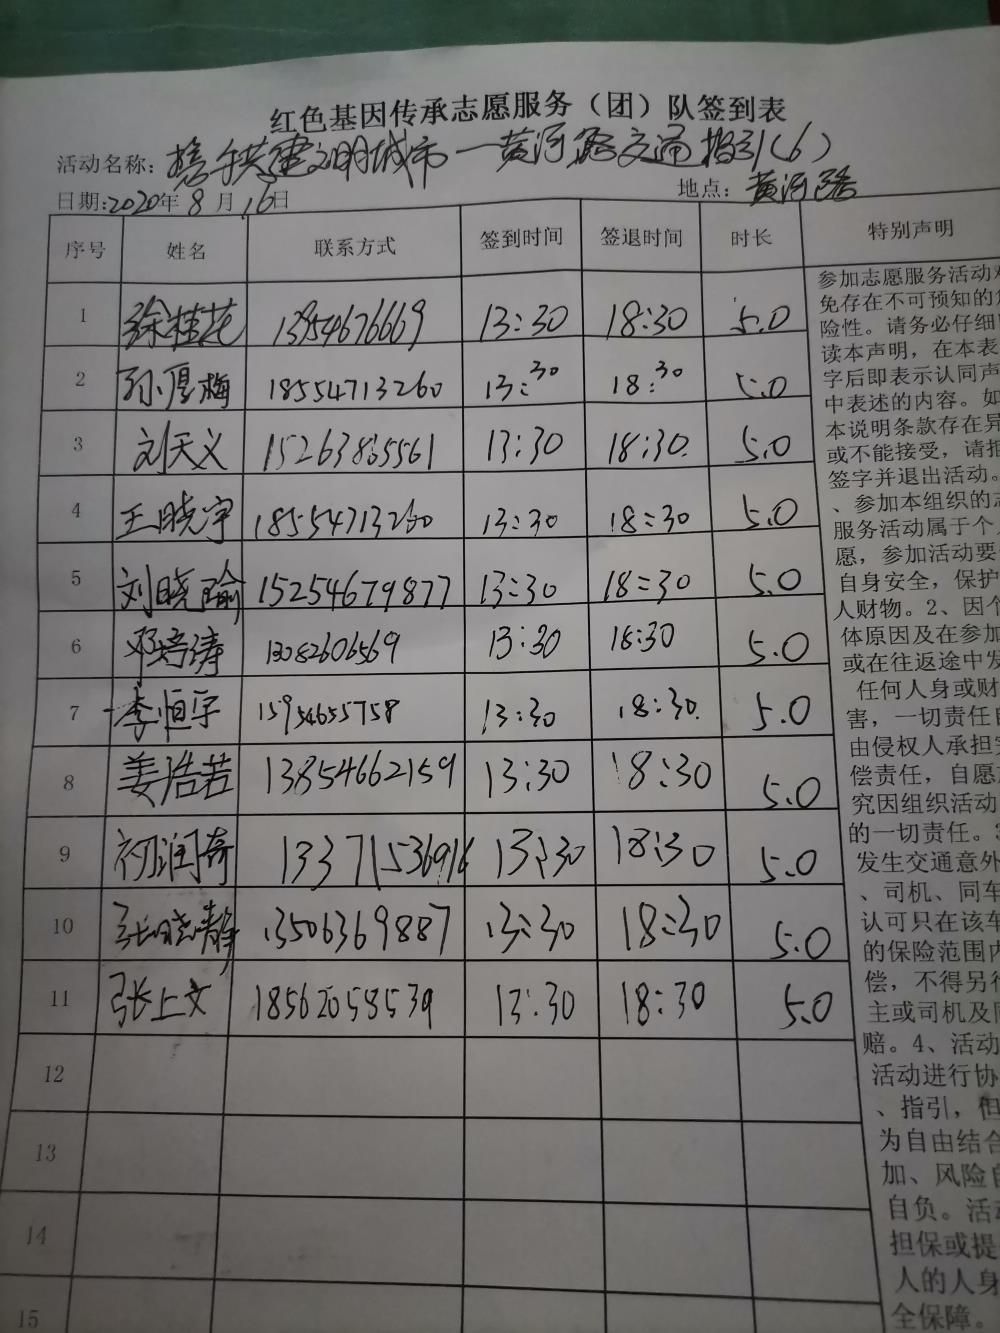 红色基因传承志愿服务（团）队签到表
活动名称：携手共建文明城市—黄河路交通指引（6）
日期：2020年8月16日 地点：黄河路
序号 姓名 联系方式 签到时间 签退时间 时长 特别声明
1 徐桂花 13954676669 13:30 18:30 5.0
2 孙厚梅 18554713260 13:30 18:30 5.0
3 刘天义 15263865561 13:30 18:30 5.0
4 王晓宇 18554713260 13:30 18:30 5.0
5 刘晓瑜 15254679877 13:30 18:30 5.0
6 邓培涛 13082606569 13:30 18:30 5.0
7 李恒宇 15954655758 13:30 18:30 5.0
8 姜浩若 13854662159 13:30 18:30 5.0
9 初润奇 13371536916 13:30 18:30 5.0
10 张晓静 13506369887 13:30 18:30 5.0
11 张上文 18562058539 13:30 18:30 5.0
12
13
14
15
参加志愿服务活动
免存在不可预知的
险性。请务必仔细
读本声明，在本表
字后即表示认同声
中表述的内容。如
本说明条款存在异
或不能接受，请拒
签字并退出活动。
、参加本组织的志
服务活动属于个
愿，参加活动要
自身安全，保护
人财物。2、因个
体原因及在参加
或在往返途中发
任何人身或财
害，一切责任
由侵权人承担
偿责任，自愿
究因组织活动
的一切责任。3
发生交通意外
、司机、同车
认可只在该车
的保险范围内
偿，不得另行
主或司机及同
赔。4、活动
活动进行协
、指引，但
为自由结合
加、风险自
自负。活动
担保或提
人的人身
全保障。